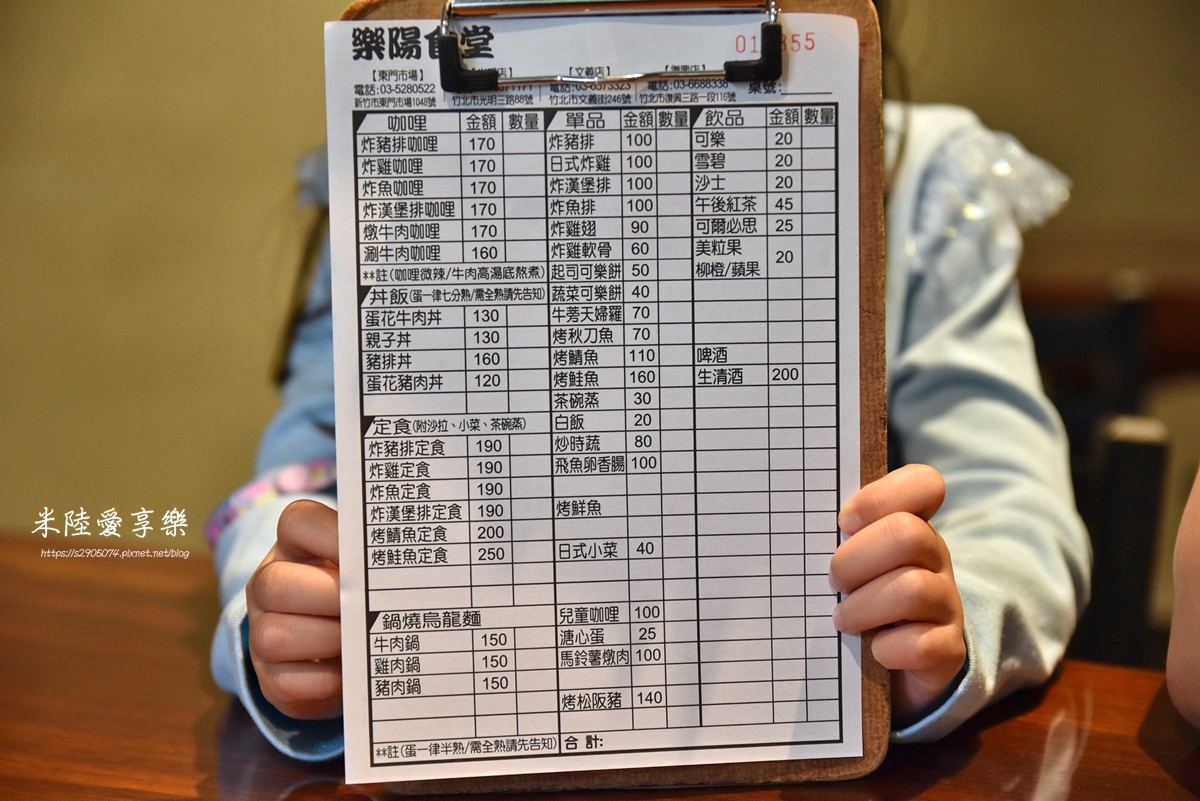 樂陽食堂
【東門市場】
電話:03-5280522
新竹市東門市場1048號
竹北市光明三路88號
【文義店】
電話:03-6573323
竹北市文義街246號
電話:03-6688338
竹北市復興三路一段116號
桌號:
咖哩 金額 數量
炸豬排咖哩 170
炸雞咖哩 170
炸魚咖哩 170
炸漢堡排咖哩 170
燉牛肉咖哩 170
涮牛肉咖哩 160
**註(咖哩微辣/牛肉高湯底熬煮)
丼飯(蛋一律七分熟/需全熟請先告知)
蛋花牛肉丼 130
親子丼 130
豬排丼 160
蛋花豬肉丼 120
定食(附沙拉、小菜、茶碗蒸)
炸豬排定食 190
炸雞定食 190
炸魚定食 190
炸漢堡排定食 190
烤鯖魚定食 200
烤鮭魚定食 250
鍋燒烏龍麵
牛肉鍋 150
雞肉鍋 150
豬肉鍋 150
**註(蛋一律半熟/需全熟請先告知)
單品 金額 數量
炸豬排 100
日式炸雞 100
炸漢堡排 100
炸魚排 100
炸雞翅 90
炸雞軟骨 60
起司可樂餅 50
蔬菜可樂餅 40
牛蒡天婦羅 70
烤秋刀魚 70
烤鯖魚 110
烤鮭魚 160
茶碗蒸 30
白飯 20
炒時蔬 80
飛魚卵香腸 100
烤鮮魚
日式小菜 40
兒童咖哩 100
溏心蛋 25
馬鈴薯燉肉 100
烤松阪豬 140
合計:
飲品 金額 數量
可樂 20
雪碧 20
沙士 20
午後紅茶 45
可爾必思 25
美粒果
柳橙/蘋果 20
啤酒
生清酒 200
米陸愛享樂
https://s2905074.pixnet.net/blog